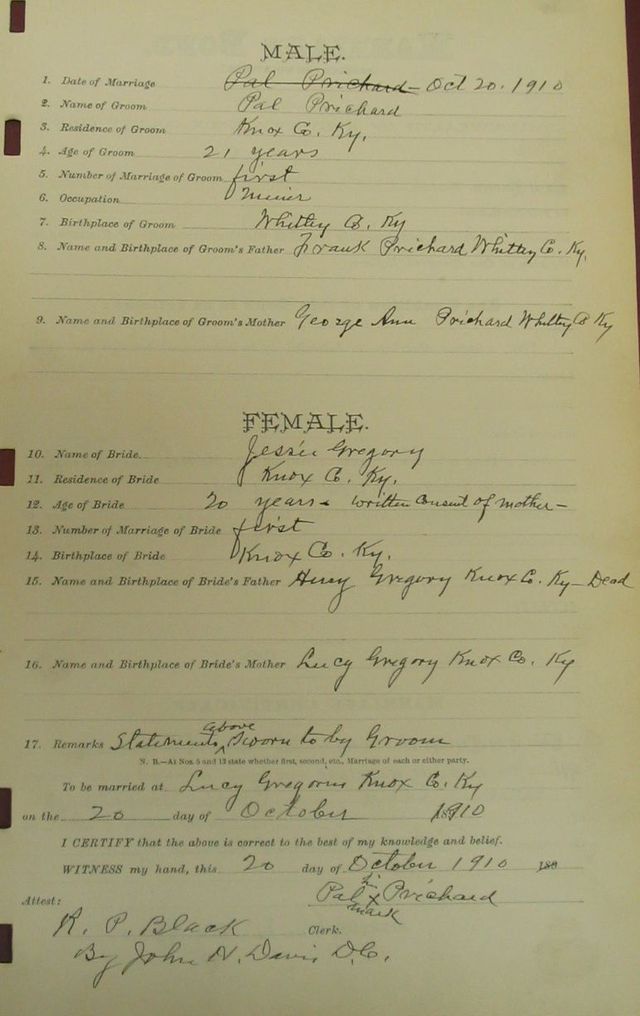 MALE.
1. Date of Marriage Pal Prichard - Oct 20. 1910
2. Name of Groom Pal Prichard
3. Residence of Groom Knox Co. Ky.
4. Age of Groom 21 years
5. Number of Marriage of Groom first
6. Occupation Miner
7. Birthplace of Groom Whitley Co. Ky
8. Name and Birthplace of Groom's Father Frank Prichard Whitley Co. Ky.
9. Name and Birthplace of Groom's Mother George Ann Prichard Whitley Co Ky
FEMALE.
10. Name of Bride Jessie Gregory
11. Residence of Bride Knox Co. Ky.
12. Age of Bride 20 years - written consent of mother -
13. Number of Marriage of Bride first
14. Birthplace of Bride Knox Co. Ky.
15. Name and Birthplace of Bride's Father Henry Gregory Knox Co. Ky - Dead
16. Name and Birthplace of Bride's Mother Lucy Gregory Knox Co. Ky
17. Remarks Statements above Sworn to by Groom
N. B.—At Nos. 5 and 13 state whether first, second, etc., Marriage of each or either party.
To be married at Lucy Gregorys Knox Co. Ky
on the 20 day of October 1910
I CERTIFY that the above is correct to the best of my knowledge and belief.
WITNESS my hand, this 20 day of October 1910 189
Pal his x mark Prichard
Attest:
R. P. Black Clerk.
By John N. Davis D.C.